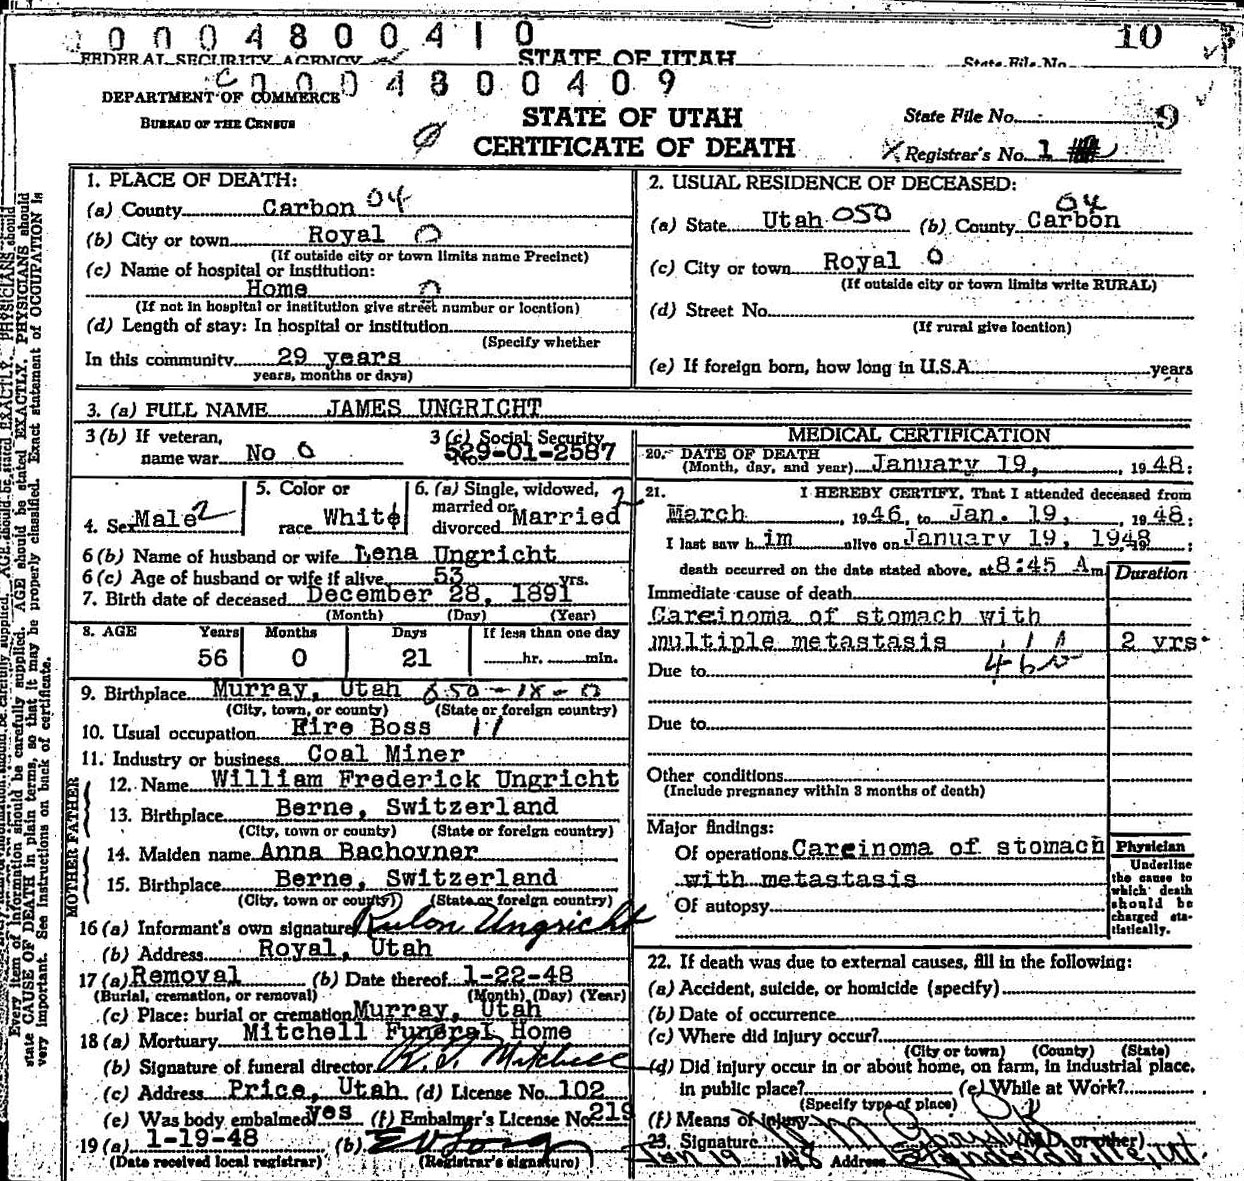 0004800410
10
FEDERAL SECURITY AGENCY STATE OF UTAH State File No.
0004800409
DEPARTMENT OF COMMERCE
BUREAU OF THE CENSUS
STATE OF UTAH
CERTIFICATE OF DEATH
State File No. 9
Registrar's No. 1
1. PLACE OF DEATH:
(a) County Carbon 04
(b) City or town Royal 0
(If outside city or town limits name Precinct)
(c) Name of hospital or institution:
Home 0
(If not in hospital or institution give street number or location)
(d) Length of stay: In hospital or institution
(Specify whether
In this community 29 years
years, months or days)
2. USUAL RESIDENCE OF DECEASED:
(a) State Utah 050 (b) County Carbon 04
(c) City or town Royal 0
(If outside city or town limits write RURAL)
(d) Street No.
(If rural give location)
(e) If foreign born, how long in U.S.A. years
3. (a) FULL NAME JAMES UNGRICHT
3 (b) If veteran, name war No 0
3 (c) Social Security No. 529-01-2587
4. Sex Male 2
5. Color or race White
6. (a) Single, widowed, married or divorced Married 2
6 (b) Name of husband or wife Lena Ungricht
6 (c) Age of husband or wife if alive 53 yrs.
7. Birth date of deceased December 28, 1891
(Month) (Day) (Year)
8. AGE Years Months Days If less than one day
56 0 21 hr. min.
9. Birthplace Murray, Utah
(City, town, or county) (State or foreign country)
10. Usual occupation Fire Boss 11
11. Industry or business Coal Miner
FATHER
12. Name William Frederick Ungricht
13. Birthplace Berne, Switzerland
(City, town or county) (State or foreign country)
MOTHER
14. Maiden name Anna Bachovner
15. Birthplace Berne, Switzerland
(City, town or county) (State or foreign country)
16 (a) Informant's own signature Rulon Ungricht
(b) Address Royal, Utah
17 (a) Removal (b) Date thereof 1-22-48
(Burial, cremation, or removal) (Month) (Day) (Year)
(c) Place: burial or cremation Murray, Utah
18 (a) Mortuary Mitchell Funeral Home
(b) Signature of funeral director Mitchell
(c) Address Price, Utah (d) License No. 102
(e) Was body embalmed yes (f) Embalmer's License No. 219
19 (a) 1-19-48 (b)
(Date received local registrar) (Registrar's signature)
MEDICAL CERTIFICATION
20. DATE OF DEATH
(Month, day, and year) January 19, 1948:
21. I HEREBY CERTIFY, That I attended deceased from
March, 1946, to Jan. 19, 1948:
I last saw him alive on January 19, 1948;
death occurred on the date stated above, at 8:45 Am
Duration
Immediate cause of death
Carcinoma of stomach with
multiple metastasis 2 yrs.
Due to
Due to
Other conditions
(Include pregnancy within 3 months of death)
Major findings:
Of operations Carcinoma of stomach
with metastasis
Of autopsy
Physician
Underline
the cause to
which death
should be
charged sta-
tistically.
22. If death was due to external causes, fill in the following:
(a) Accident, suicide, or homicide (specify)
(b) Date of occurrence
(c) Where did injury occur?
(City or town) (County) (State)
(d) Did injury occur in or about home, on farm, in industrial place,
in public place? (e) While at Work?
(Specify type of place)
(f) Means of injury
23. Signature (M.D. or other)
Jan 19 1948 Address Standardville, Ut.
Every item of information should be carefully supplied. AGE should be stated EXACTLY. PHYSICIANS should
state CAUSE OF DEATH in plain terms, so that it may be properly classified. Exact statement of OCCUPATION is
very important. See instructions on back of certificate.